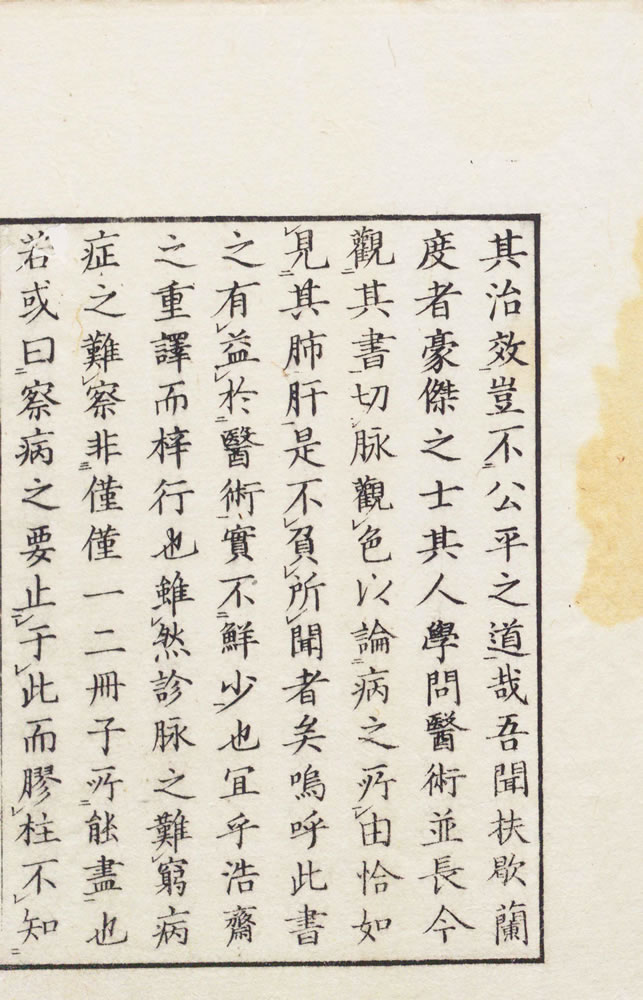 其治效豈不公平之道哉吾聞扶歇蘭
度者豪傑之士其人學問醫術並長今
觀其書切脉觀色以論病之所由恰如
見其肺肝是不負所聞者矣嗚呼此書
之有益於醫術實不鮮少也宜乎浩齋
之重譯而梓行也雖然診脉之難窮病
症之難察非僅僅一二冊子所能盡也
若或曰察病之要止于此而膠柱不知